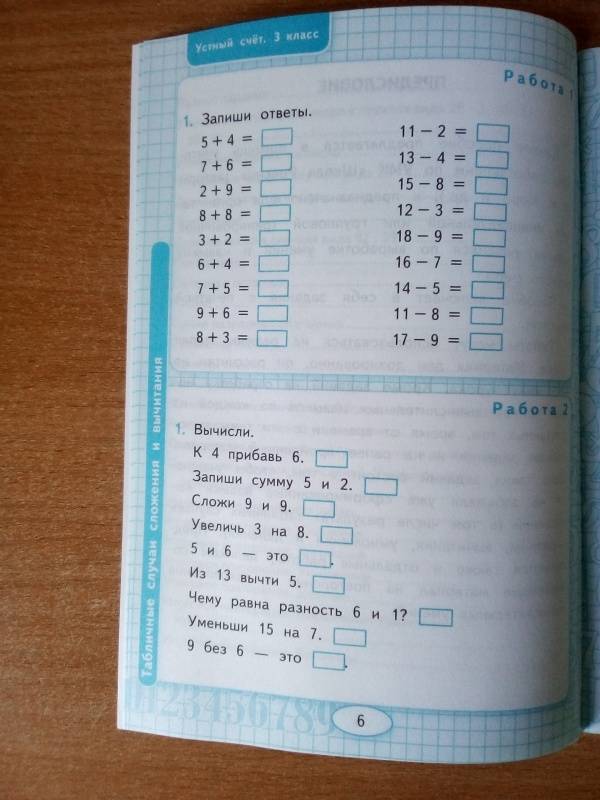 Устный счёт. 3 класс
Работа 1
1. Запиши ответы.
5 + 4 =
7 + 6 =
2 + 9 =
8 + 8 =
3 + 2 =
6 + 4 =
7 + 5 =
9 + 6 =
8 + 3 =
11 − 2 =
13 − 4 =
15 − 8 =
12 − 3 =
18 − 9 =
16 − 7 =
14 − 5 =
11 − 8 =
17 − 9 =
Работа 2
1. Вычисли.
К 4 прибавь 6.
Запиши сумму 5 и 2.
Сложи 9 и 9.
Увеличь 3 на 8.
5 и 6 — это .
Из 13 вычти 5.
Чему равна разность 6 и 1?
Уменьши 15 на 7.
9 без 6 — это .
Табличные случаи сложения и вычитания
0123456789
6